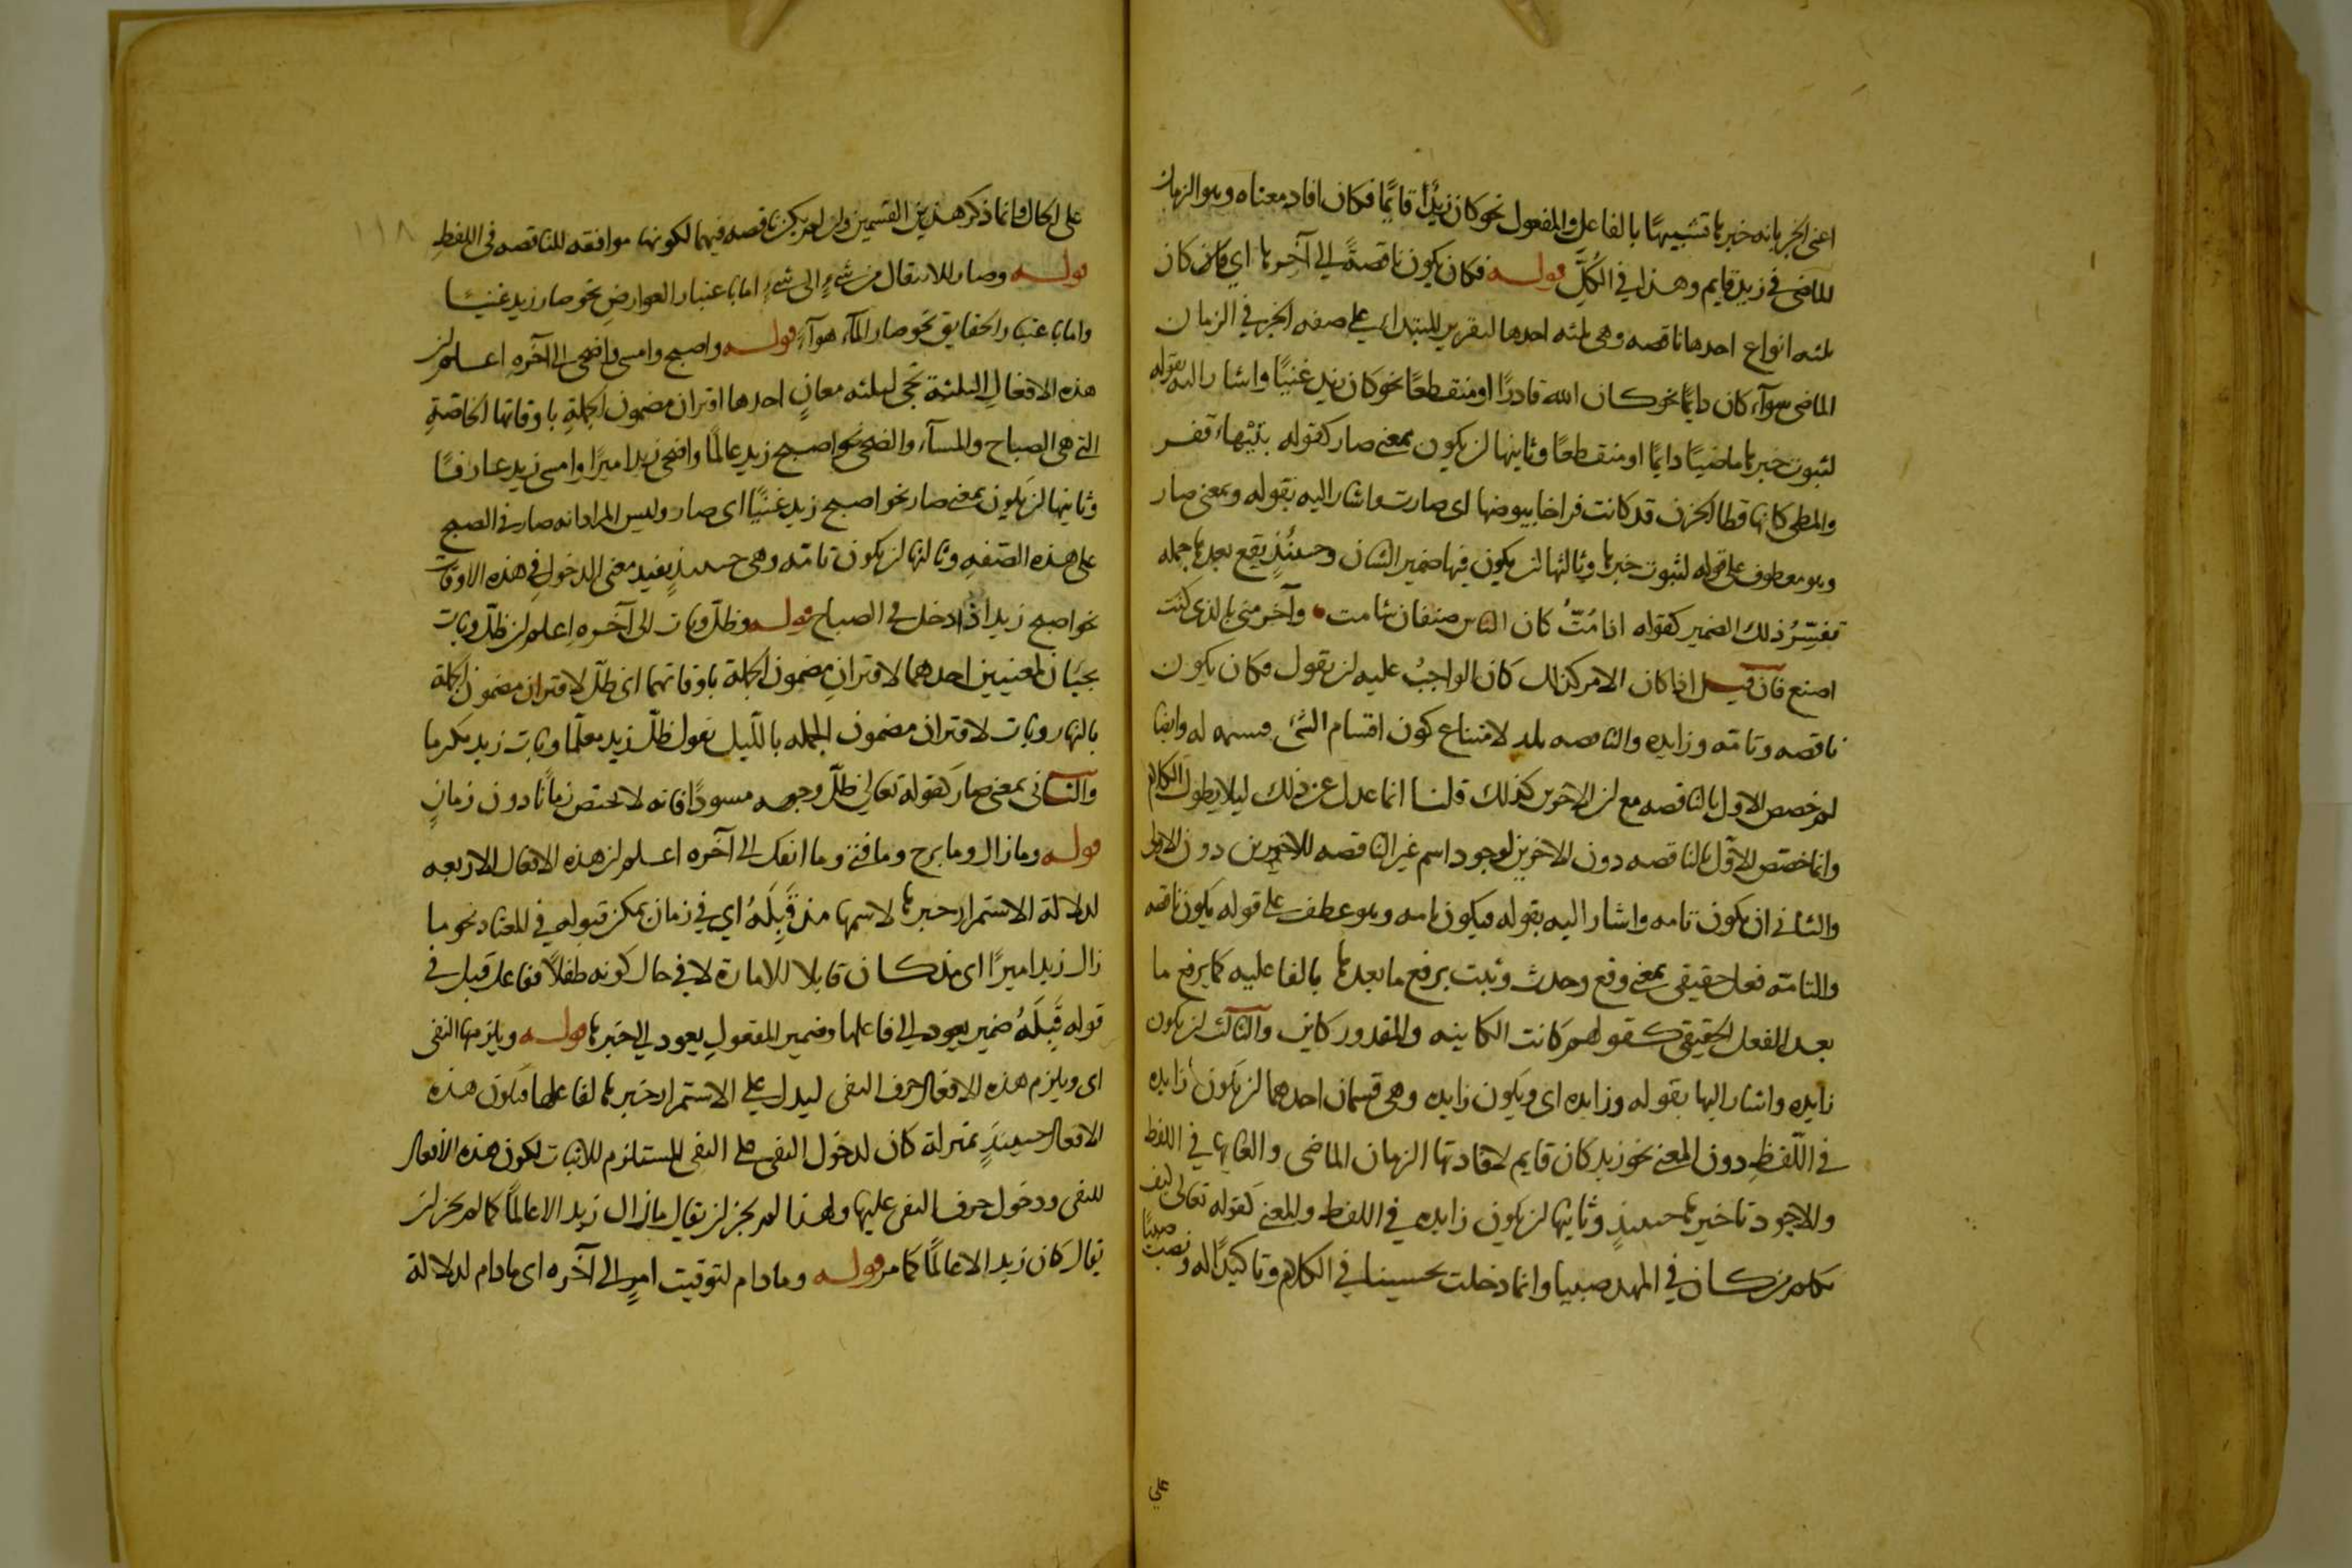 اعنى الخبر بانه خبرها تشبيهًا بالفاعل والمفعول نحو كان زيدٌ قائمًا فكان افاد معناه وهو الزمان
الماضى فى زيد قايم وهذا فى الكُلِّ قوله فكان يكون ناقصةً الى آخرها اي كان
ثلثه انواع احدها ناقصه وهى ثلثه احدها لتقرير المبتداء على صفه الخبر فى الزمان
الماضى سوآء كان دايمًا نحو كان الله قادرًا او منقطعًا نحو كان زيد غنيًا واشار اليه بقوله
لثبوت خبرها ماضيًا دايمًا او منقطعًا وثانيها ان يكون بمعنى صار كقوله بتيهاء قفر
والمطى كانها قطا الحزن قد كانت فراخا بيوضها اى صارت واشار اليه بقوله وبمعنى صار
وهو معطوف على قوله لثبوت خبرها وثالثها ان يكون فيها ضمير الشان وحينئذٍ يقع بعدها جمله
تفسِّرُ ذلك الضمير كقوله اذا مُتُّ كان الناس صنفان شامت وآخر مثنٍ بالذى كنت
اصنع فان قيل اذا كان الامر كذلك كان الواجبُ عليه ان يقول فكان يكون
ناقصه وتامّه وزايده والناقصه لامتناع كون اقسام الشئ قسيمه له وايضا
لم خصص الاول بالناقصه مع ان الاخرين كذلك قلنا انما عدل عن ذلك ليلا يطول الكلام
وانما خصّص الاوّل بالناقصه دون الاخرين لوجود اسم غير الناقصه للاخيرين دون الاول
والثانى ان يكون تامه واشار اليه بقوله ويكون تامه وهو عطف على قوله يكون ناقصه
والتامّه فعل حقيقى بمعنى وقع وحدث وثبت يرفع ما بعدها بالفاعليه كما يرفع ما
بعد الفعل الحقيقى كقولهم كانت الكاينه والمقدور كاين والثالث ان يكون
زايده واشار اليها بقوله وزايده اى ويكون زايده وهى قسمان احدهما ان يكون زايده
فى اللّفظِ دون المعنى نحو زيد كان قايم لافادتها الزمان الماضى والغايها فى اللفظ
والاجود تاخيرها حينئذٍ وثانيها ان يكون زايده فى اللفظ والمعنى كقوله تعالى كيف
نكلم من كان فى المهد صبيا وانما دخلت تحسينا فى الكلام وتاكيدًا له ونصبت صبيًا
على
على الحال وانما ذكر هذين القسمين وان لم يكن ناقصه فيهما لكونها موافقه للناقصه فى اللفظِ
١١٨
قوله وصار للانتقال من شئٍ الى شئٍ اما باعتبار العوارضِ نحو صار زيد غنيًا
واما باعتبار الحقايق نحو صار المآء هوآءً قوله واصبح وامسى واضحى الى آخره اعلم ان
هذه الافعالِ الثلثة تجى لثلثه معانٍ احدها اقتران مضمون الجملةِ باوقاتها الخاصّةِ
التى هى الصباح والمسآء والضحى نحو اصبح زيد عالمًا واضحى زيد اميرًا وامسى زيد عارفًا
وثانيها ان يكون بمعنى صار نحو اصبح زيد غنيًّا اى صار وليس المراد انه صار فى الصبح
على هذه الصّفهِ وثالثها ان يكون تامّه وهى حينئذٍ يفيد معنى الدخول فى هذه الاوقات
نحو اصبح زيد اذا دخل فى الصباح قوله وظلّ وبات الى آخره اعلم ان ظلّ وبات
يجيئان لمعنيين احدهما لاقترانِ مضمون الجملة باوقاتهما اى ظلّ لاقتران مضمون الجملة
بالنهار وبات لاقتران مضمون الجمله باللّيل نقول ظلّ زيد معلّما وبات زيد مكرما
والثانى بمعنى صار كقوله تعالى ظلّ وجهه مسودًا فانه لا يختص زمانًا دون زمانٍ
قوله وما زال وما برح وما فتئ وما انفك الى آخره اعلم ان هذه الافعال الاربعه
لدلالة الاستمرار خبرها لاسمها مذ قَبِلَهُ اي فى زمان يمكن قبوله فى المعتاد نحو ما
زال زيد اميرًا اى مذ كان قابلا للامارة لا فى حال كونه طفلاً ففاعل قبل فى
قوله قَبِلَهُ ضمير يعود الى فاعلها وضمير المفعولِ يعود الى خبرها قوله ويلزمها النفى
اى ويلزم هذه الافعال حرف النفى ليدل على الاستمرار خبرها لفاعلها فيكون هذه
الافعال حينئذٍ بمنزلة كان لدخول النفى على النفى المستلزم للاثبات لكون هذه الافعال
للنفى ودخول حرف النفى عليها ولهذا لم يجز ان يقال ما زال زيد الا عالمًا كما لم يجز ان
يقال كان زيد الا عالمًا كما مر قوله وما دام لتوقيت امرٍ الى آخره اى ما دام لدلالة